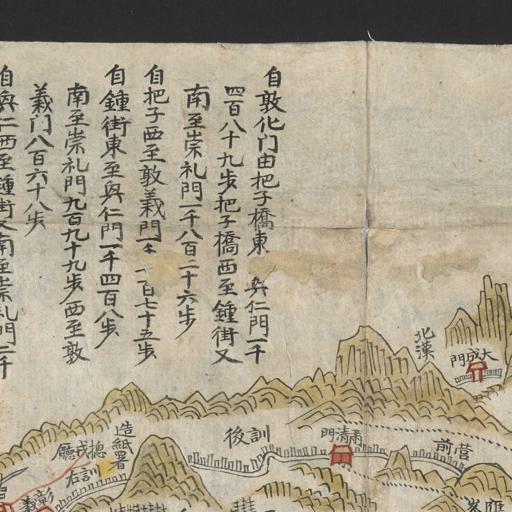 自敦化门由把子橋東 興仁門一千
四百八十九步把子橋西至鍾街又
南至崇礼門一千八百二十六步
自把子西至敦義門一千 百七十五步
自鍾街東至興仁門一千四百八步
南至崇礼門九百九十九步西至敦
義门八百六十八步
自興仁西至鍾街又南至崇礼門一千
北漢
大成門
造紙署
摠戎廳
訓
右
訓後
肅清門
營前
彰義